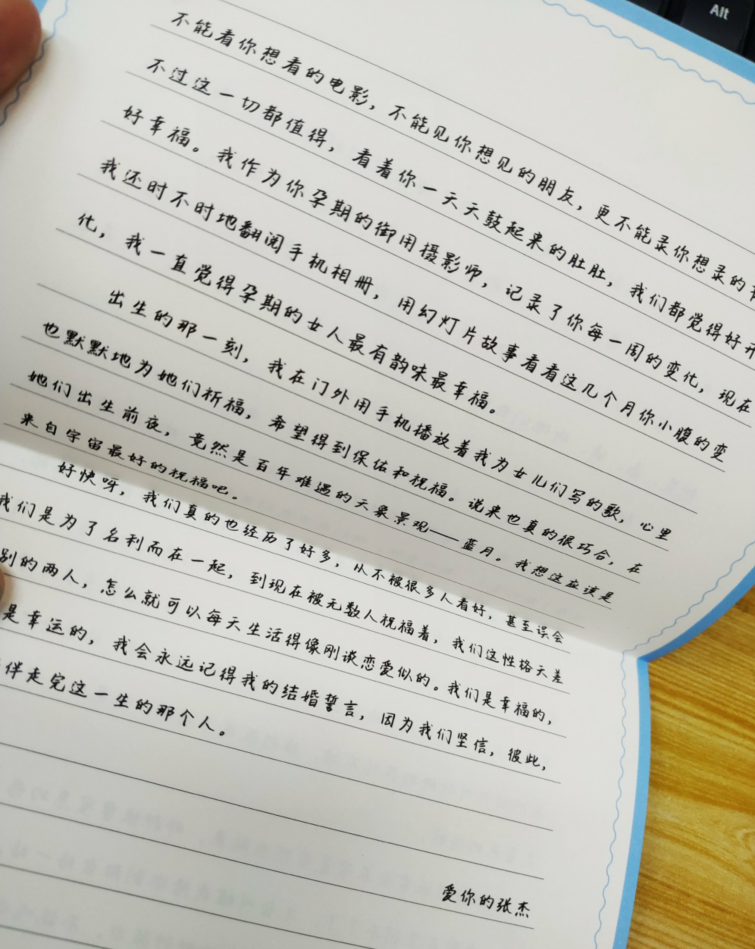 Alt
不能看你想看的电影，不能见你想见的朋友，更不能录你想录的
不过这一切都值得，看着你一天天鼓起来的肚肚，我们都觉得好开
好幸福。我作为你孕期的御用摄影师，记录了你每一周的变化，现在
我还时不时地翻阅手机相册，用幻灯片故事看看这几个月你小腹的变
化，我一直觉得孕期的女人最有韵味最幸福。
出生的那一刻，我在门外用手机播放着我为女儿们写的歌，心里
也默默地为她们祈福，希望得到保佑和祝福。说来也真的很巧合，在
她们出生前夜，竟然是百年难遇的天象景观——蓝月。我想这应该是
来自宇宙最好的祝福吧。
好快呀，我们真的也经历了好多，从不被很多人看好，甚至误会
我们是为了名利而在一起，到现在被无数人祝福着，我们这性格天差
别的两人，怎么就可以每天生活得像刚谈恋爱似的。我们是幸福的，
是幸运的，我会永远记得我的结婚誓言，因为我们坚信，彼此，
伴走完这一生的那个人。
爱你的张杰